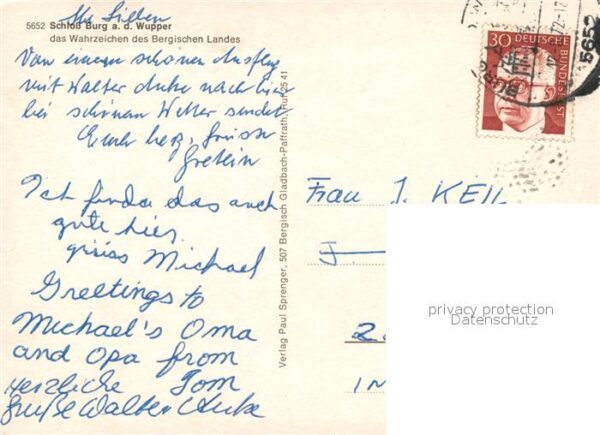 Ihr Lieben
5652 Schloß Burg a. d. Wupper
das Wahrzeichen des Bergischen Landes
Von einem schönen Ausflug
mit Walter Anke nach hier
bei schönem Wetter sendet
Euch herz. Grüsse
Gretein
Ich finde das auch
gute hier.
grüss Michael
Greetings to
Michael's Oma
and Opa from
Tom
Herzliche
Grüße Walter Anke
Verlag Paul Sprenger, 507 Bergisch Gladbach-Paffrath, Ruf 25 41
30
DEUTSCHE BUNDESPOST
5652
BURG
Frau J. KEIL
privacy protection
Datenschutz